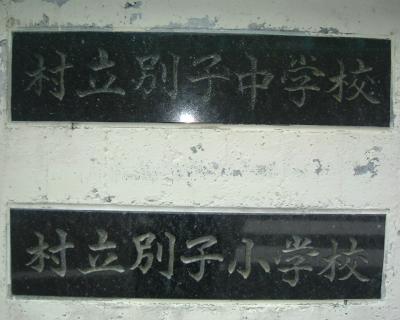 村立別子中学校
村立別子小学校